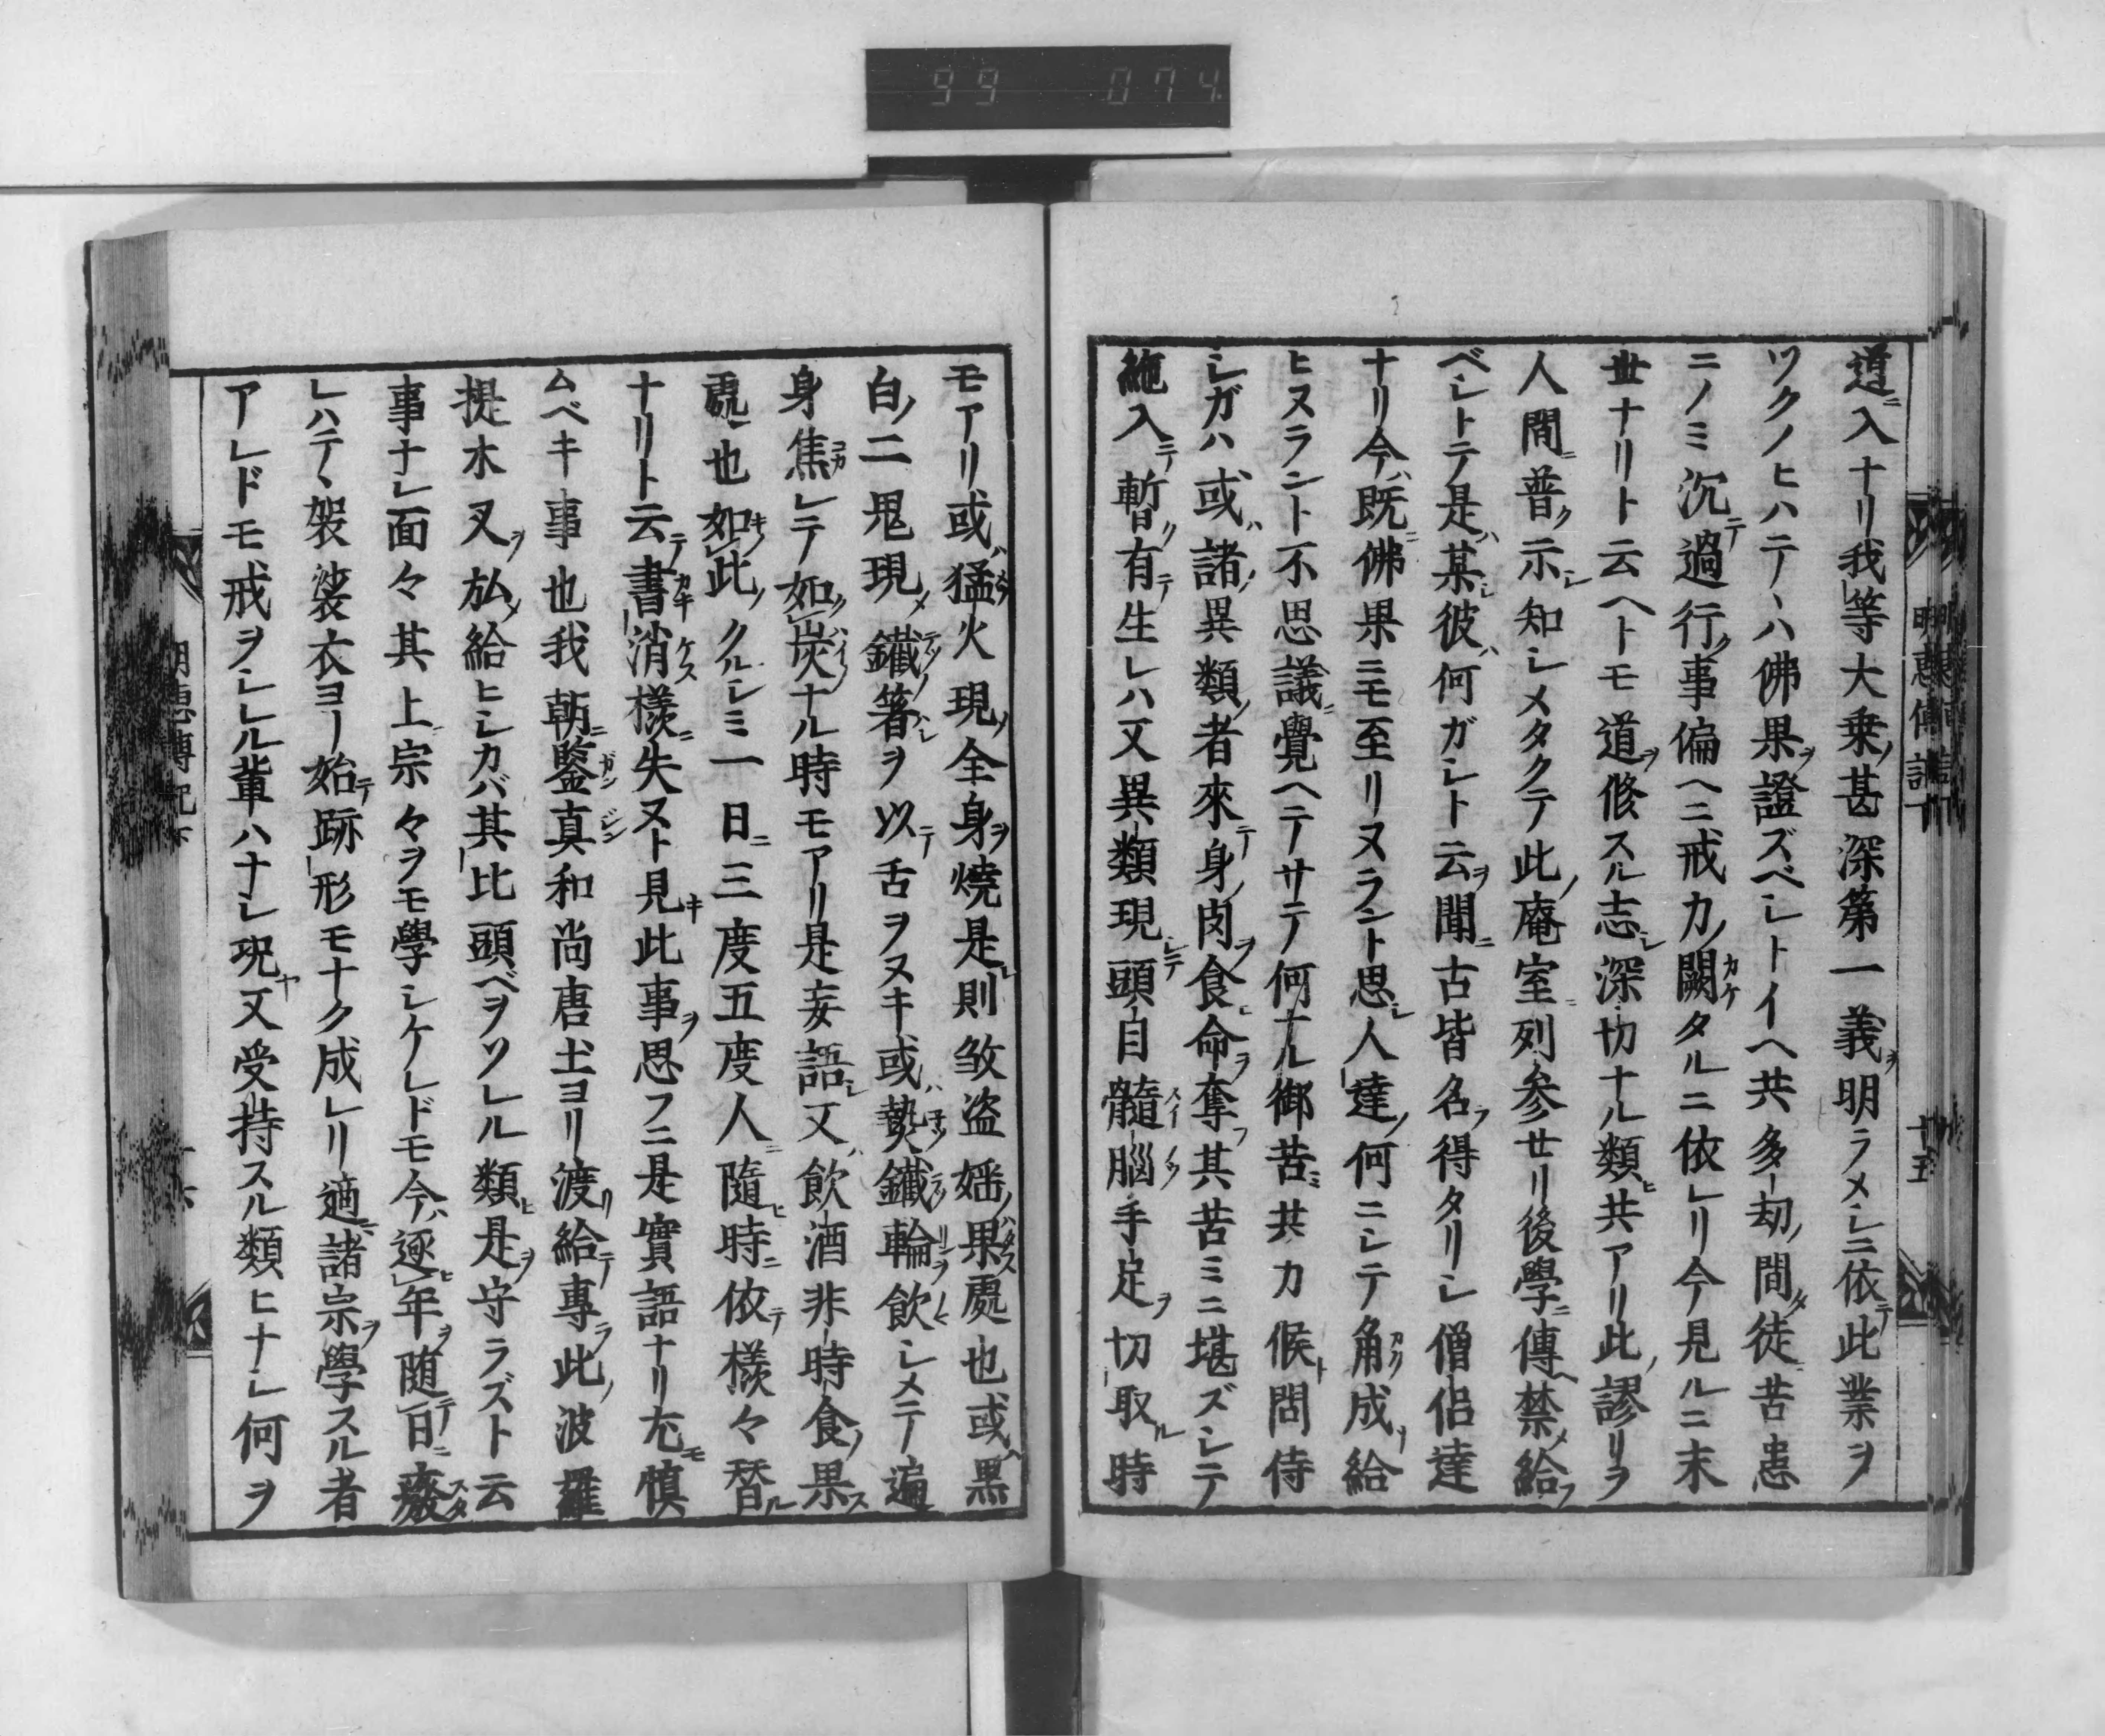 99 074
道ニ入ナリ我等大乗ノ甚深第一義ヲ明ラメシニ依テ此業ヲ
ツクノヒハテヽハ佛果ヲ證ズベシトイヘ共多劫ノ間タ徒ニ苦患
ニノミ沉テ過行ク事偏ヘニ戒力ノ闕カケタルニ依レリ今見ルニ末
世ナリト云ヘトモ道ヲ修スル志シ深切ナル類ヒ共アリ此ノ謬リヲ
人間ニ普ク示シ知シメタクテ此ノ庵室ニ列参せリ後學ニ傳ヘ禁メ給フ
ベシトテ是ハ某シ彼ハ何ガシト云ヲ聞ニ古皆名ヲ得タリシ僧侶達
ナリ今ハ既ニ佛果ニモ至リヌラント思シ人達ノ何ニシテ角カク成リ給
ヒヌラント不思議ニ覺ヘテサテ何ナル御苦ミ共カ候ト問侍
シガハ或ハ諸ノ異類ノ者來テ身ノ肉ヲ食ヒ命ヲ奪フ其苦ミニ堪ズシテ
絶入シテ暫ク有テ生レハ又異類現シテ頭自髓スイ腦ノウ手足ヲ切取ル時
明惠傳記下 十五
モアリ或ハ猛ミヤウ火現ノ全身ヲ燒是レ則殺盗婬ノ果ハタス處也或ハ黒
白ノ二鬼現メ鐵テツノ箸ハシヲ以テ舌ヲヌキ或ハ熱鐵テツ輪リンヲ飲ヒシメテ遍
身焦コガレテ如炭ハイノナル時モアリ是妄語シ又ハ飲酒非時食ノ果ス
處也如キ此ノクルシミ一日ニ三度五度人ニ隨ヒ時ニ依テ樣々替ル
ナリト云テ書カキ消ケス樣ニ失ヌト見キ此事ヲ思フニ是實語ナリ尤モ慎
ムベキ事也我朝ニ鑒ガン真ジン和尚唐土ヨリ渡リ給テ專ラ此ノ波羅
提木叉ヲ弘メ給ヒシカバ其比頭ベヲソレル類ヒ是ヲ守ラズト云
事ナシ面々其上ニ宗々ヲモ學シケレドモ今ハ逐ヒ年ヲ随テ日ニ癈スタ
レハテヽ袈裟衣ヨリ始テ跡形モナク成レリ適ニ諸宗ヲ學スル者
アレドモ戒ヲシレル輩ハナシ況ヤ又受持スル類ヒナシ何ヲ